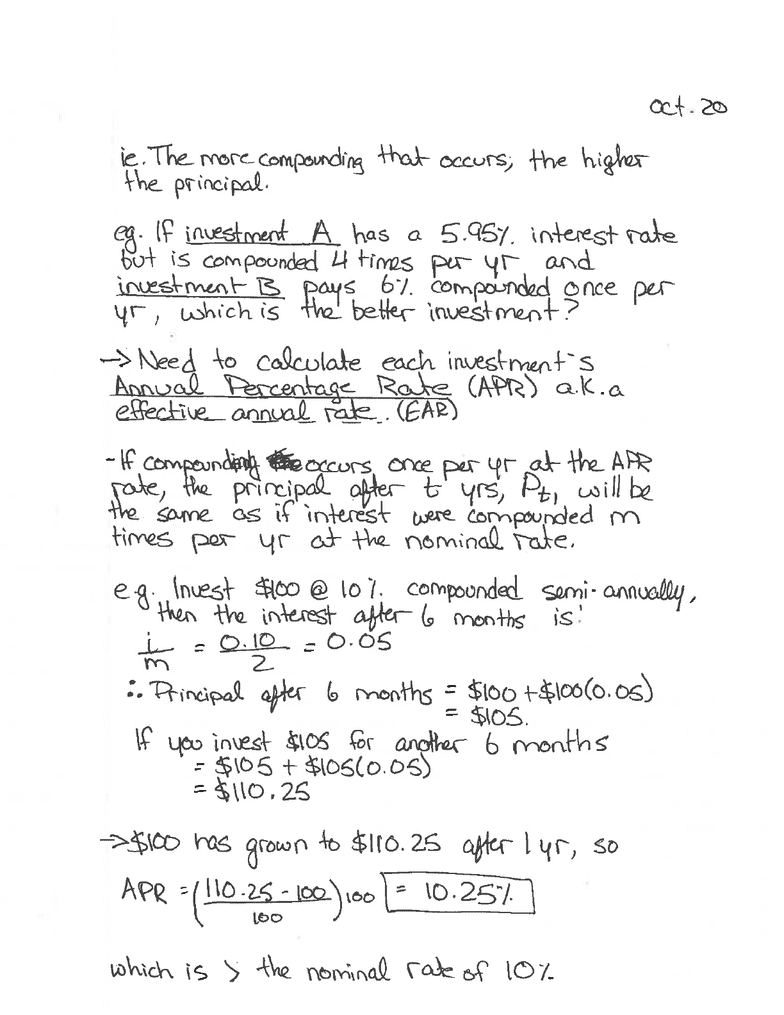 Oct. 20
ie. The more compounding that occurs, the higher
the principal.
eg. If investment A has a 5.95% interest rate
but is compounded 4 times per yr and
investment B pays 6% compounded once per
yr, which is the better investment?
→ Need to calculate each investment's
Annual Percentage Rate (APR) a.k.a
effective annual rate. (EAR)
- If compounding occurs once per yr at the APR
rate, the principal after t yrs, Pt, will be
the same as if interest were compounded m
times per yr at the nominal rate.
e.g. Invest $100 @ 10% compounded semi-annually,
then the interest after 6 months is:
i/m = 0.10/2 = 0.05
∴ Principal after 6 months = $100 + $100(0.05)
= $105.
If you invest $105 for another 6 months
= $105 + $105(0.05)
= $110.25
→ $100 has grown to $110.25 after 1 yr, so
APR = ((110.25 - 100)/100)100 = 10.25%
which is > the nominal rate of 10%